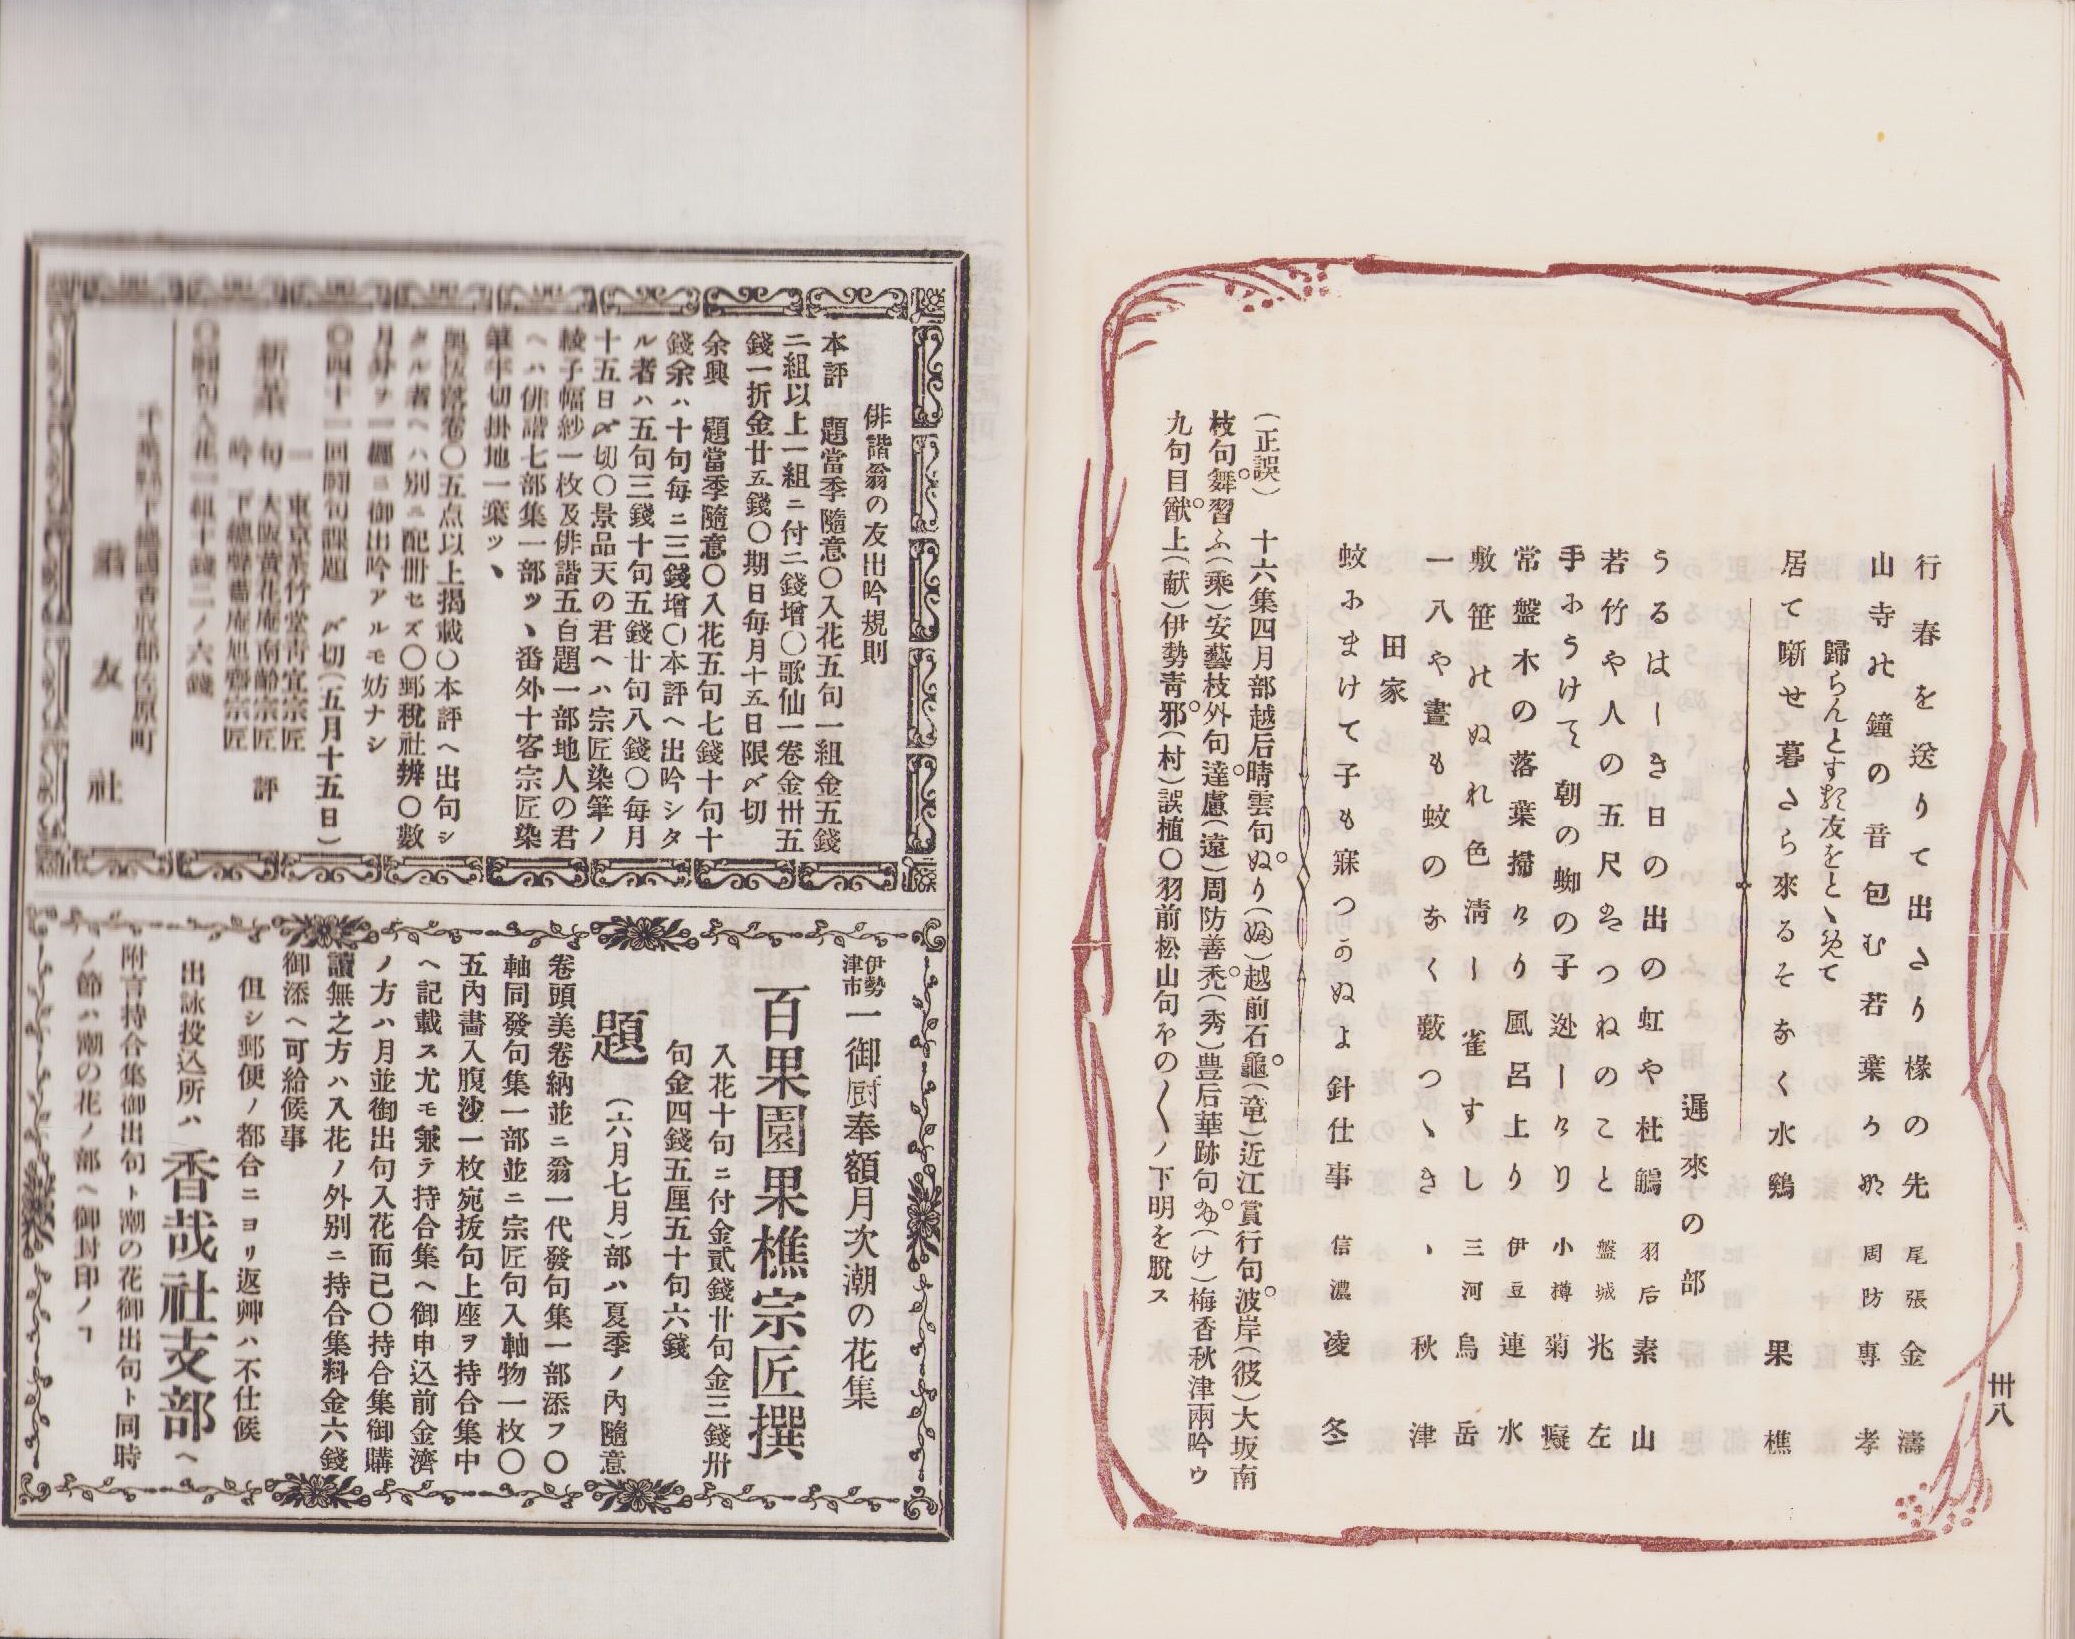 卅八
行春を送りて出さり椽の先 尾張 金濤
山寺の鐘の音包む若葉うな 周防 專孝
歸らんとする友をとゝめて
居て噺せ暮さら來るそなく水鷄 果樵
遲來の部
うるはしき日の出の虹や杜鵑 羽后 素山
若竹や人の五尺はつねのこと 盤城 兆左
手にうけて朝の蜘の子迯しけり 小樽 菊癡
常盤木の落葉掃けり風呂上り 伊豆 連水
敷笹にぬれ色清し雀すし 三河 烏岳
一八や晝も蚊のなく藪つゝき 、 秋津
田家
蚊にまけて子も寐つかぬよ針仕事 信濃 凌冬
(正誤) 十六集四月部越后晴雲句ぬり(ぬる)越前石龜(竜)近江賞行句波岸(彼)大坂南
枝句舞習ふ(乘)安藝枝外句達慮(遠)周防善禿(秀)豊后華跡句ゆ(け)梅香秋津兩吟ウ
九句目猷上(献)伊勢青邪(村)誤植〇羽前松山句ホの〱ノ下明を脫ス
俳諧翁の友出吟規則
本評 題當季隨意〇入花五句一組金五錢
二組以上一組ニ付二錢增〇歌仙一卷金卅五
錢一折金廿五錢〇期日每月十五日限〆切
余興 題當季隨意〇入花五句七錢十句十
錢余ハ十句每ニ三錢增〇本評ヘ出吟シタ
ル者ハ五句三錢十句五錢廿句八錢〇每月
十五日〆切〇景品天の君ヘハ宗匠染筆ノ
綾子幅紗一枚及俳諧五百題一部地人の君
ヘハ俳諧七部集一部ツヽ番外十客宗匠染
筆半切掛地一葉ツヽ
奧拔落卷〇五点以上揭載〇本評ヘ出句シ
タル者ヘハ別ニ配冊セズ〇郵税社辨〇數
月分ヲ一纒ニ御出吟アルモ妨ナシ
〇四十一回鬪句課題 〆切(五月十五日)
新葉 一句吟 東京茶竹堂靑宜宗匠
大阪黃花庵南齡宗匠 評
下總聲畵庵旭齋宗匠
〇鬪句入花一組十錢二ノ六錢
千葉縣下總國香取郡佐原町
翁友社
伊勢津市 一御厨奉額月次潮の花集
百果園果樵宗匠撰
入花十句ニ付金貳錢廿句金三錢卅
句金四錢五厘五十句六錢
題 (六月七月)部ハ夏季ノ內隨意
卷頭美卷納並ニ翁一代發句集一部添フ〇
軸同發句集一部並ニ宗匠句入軸物一枚〇
五內畵入腹沙一枚宛拔句上座ヲ持合集中
ヘ記載ス尤モ兼テ持合集ヘ御申込前金濟
ノ方ハ月並御出句入花而已〇持合集御購
讀無之方ハ入花ノ外別ニ持合集料金六錢
御添ヘ可給候事
但シ郵便ノ都合ニヨリ返艸ハ不仕候
出詠投込所ハ 香哉社支部ヘ
附言持合集御出句ト潮の花御出句ト同時
ノ節ハ潮の花ノ部ヘ御封印ノヿ